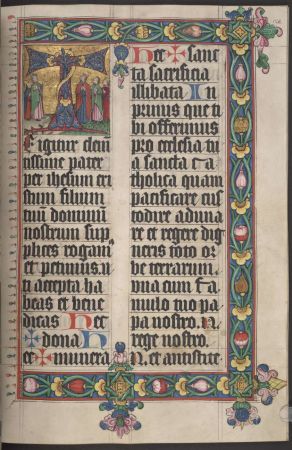 T
E igitur clem
tissime pater
per ihesum cri
stum filium
tuum dominū
nostrum sup
plices rogam
et petimus. u
ti accepta ha
beas et bene
dicas Hec
✠ dona
et ✠ munera
Hec ✠ sanc
ta sacrificia
illibata In
primis que ti
bi offerimus
pro ecclesia tu
a sancta ca
tholica quam
pacificare cus
todire aduna
re et regere dig
neris toto or
be terrarum.
una cum fa
mulo tuo pa
pa nostro. N.
rege nostro.
N. et antistite